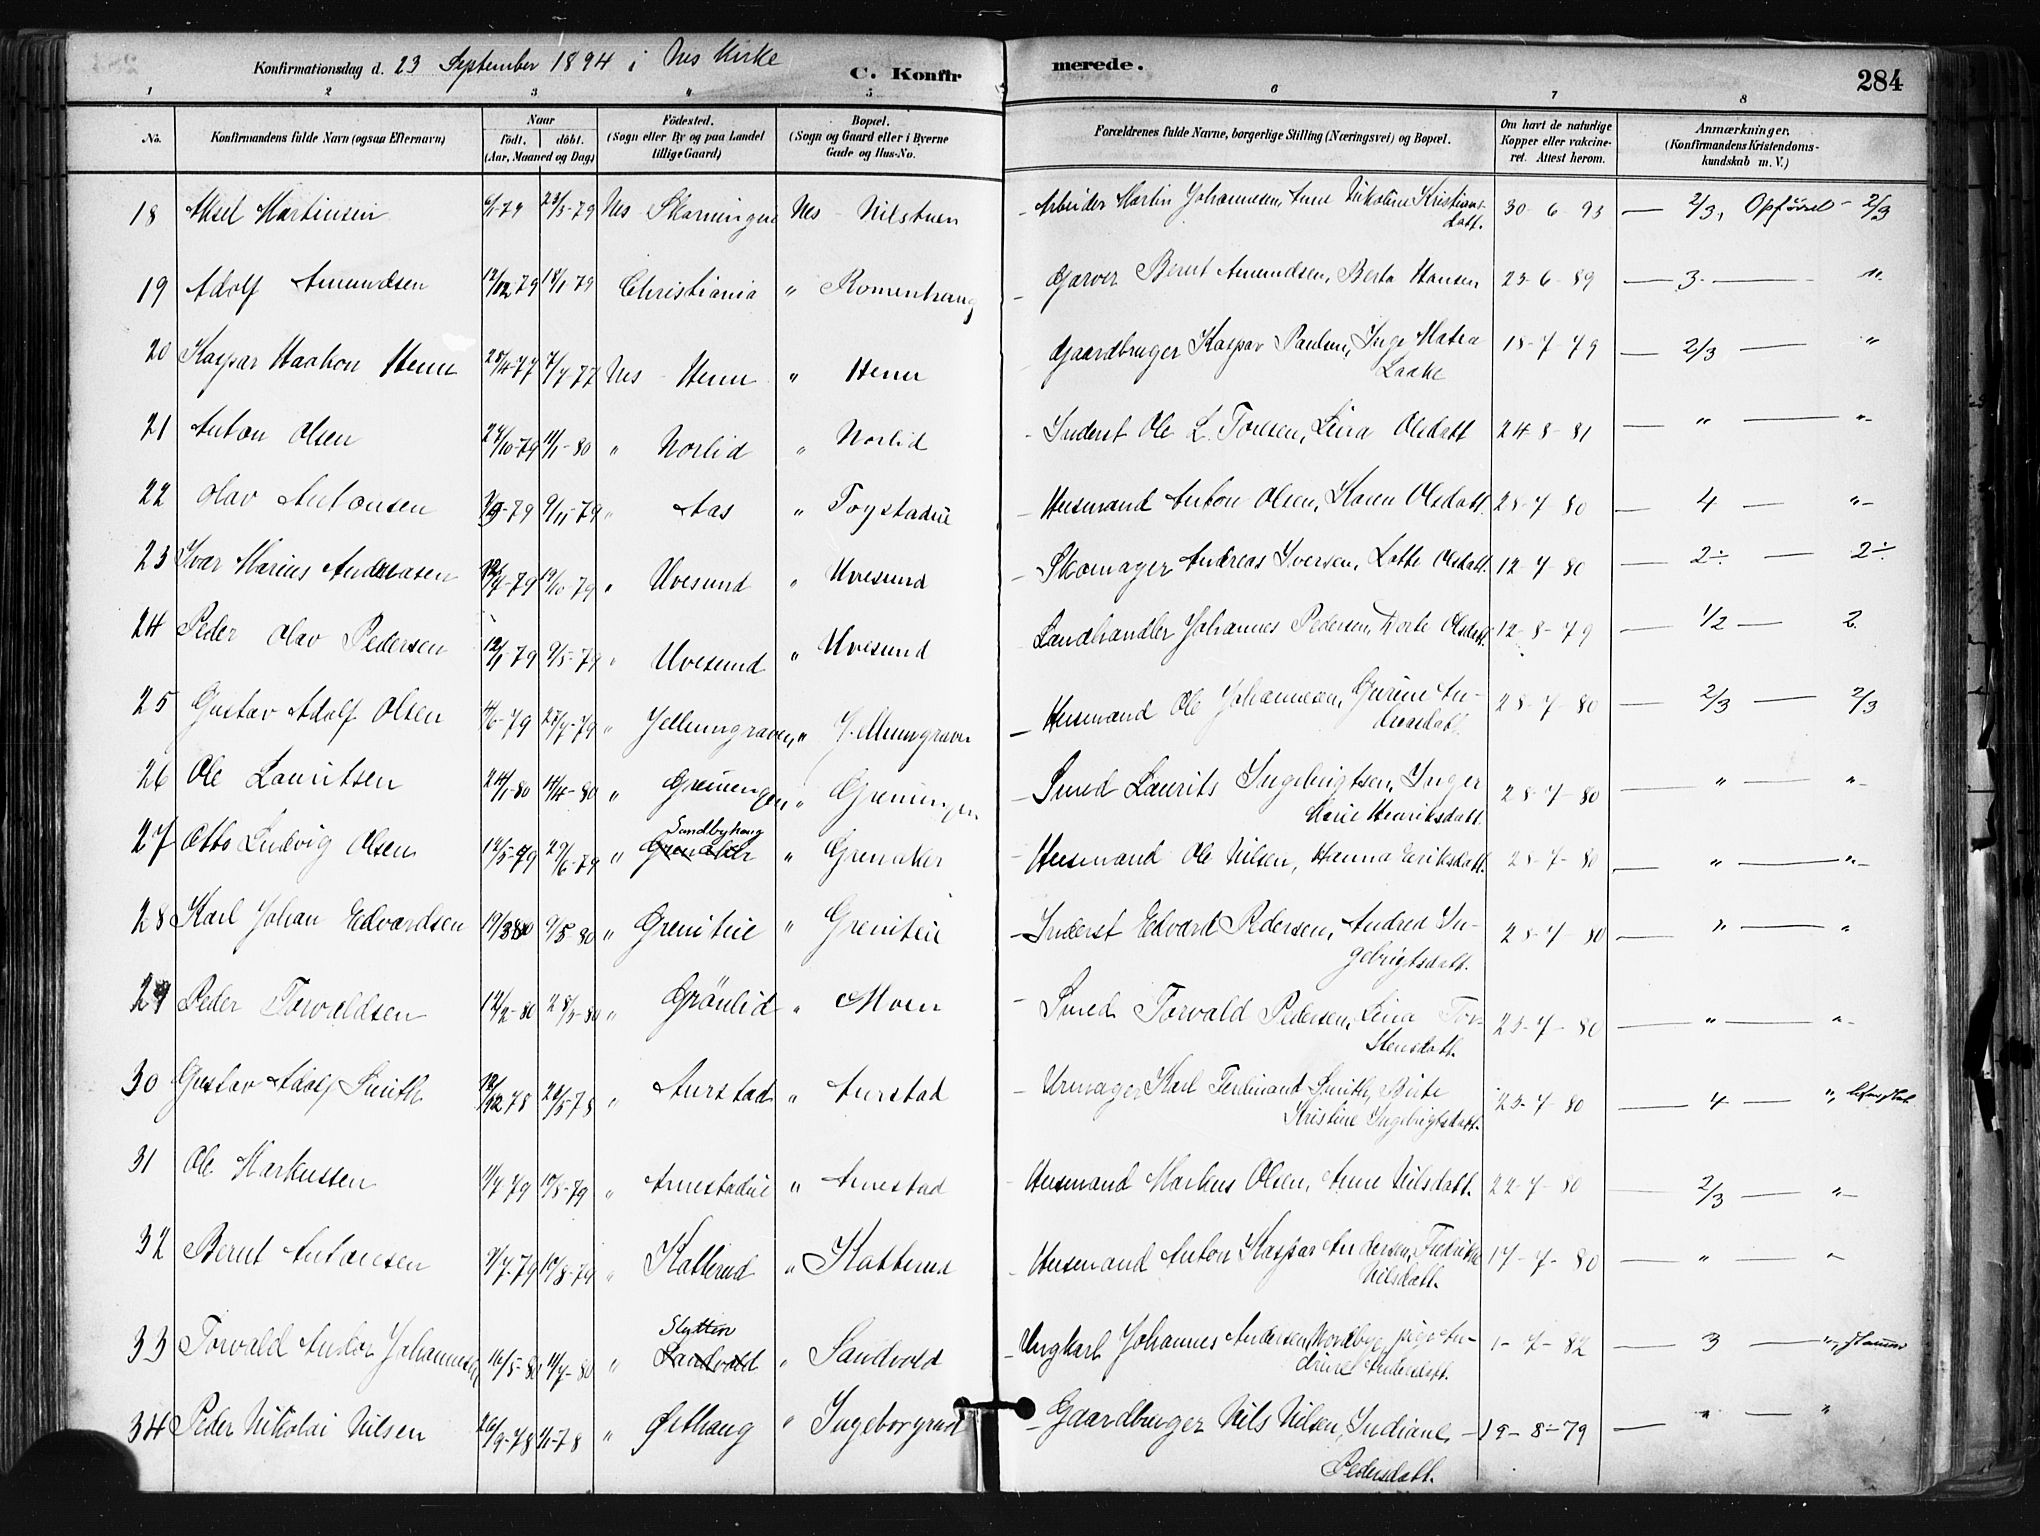 Konfirmationsdag d. 23 September 1894 i Nes Kirke
C. Konfirmerede.
284
1 2 3 4 5 6 7 8
No. Konfirmandens fulde Navn (ogsaa Efternavn) Naar født. døbt. (Aar, Maaned og Dag) Fødested. (Sogn eller By og paa Landet tillige Gaard) Bopæl. (Sogn og Gaard eller i Byerne Gade og Hus-No. Forældrenes fulde Navne, borgerlige Stilling (Næringsvei) og Bopæl. Om havt de naturlige Kopper eller vakcineret. Attest herom. Anmærkninger. (Konfirmandens Kristendomskundskab m. V.)
18 Aksel Martinsen 6/1-79 23/3-79 Nes Nes - Nilstuen - Arbeider Martin Johannesen, Anne Nikoline Kristiansdatt. 30-6-93 — 2/3, Opførsel - 2/3
19 Adolf Amundsen 18/1-79 Christiania " Romenhaug - Garver Bernt Amundsen, Berta Hansen 23-6-89 — 3 — "
20 Kaspar Haakon Henn 7/7-77 Nes - Henn " Henn Gaardbruger Kaspar Paulsen, Inge Laake 18-7-79 — 2/3 — "
21 Anton Olsen 24/10-79 11/1-80 " Norlid " Norlid - Inderst Ole L. Olsdatt 24-8-81 — " — "
22 Olav Antonsen 9/11-79 " Aas " Togstadeie - Husmand Anton Olsen, Karen Olsdatt. 28-7-80 — 4 — "
23 Ivar Marius Andreasen 19/10-79 " Uvesund " Uvesund - Skomager Andreas Iversen, Lotte Olsdatt. 12-7-80 — 2÷ — 2÷
24 Peder Olav Pedersen 12/1-79 9/5-79 " Uvesund " Uvesund Landhandler Johannes Pedersen, Dorte Olsdatt. 12-8-79 — 1/2 — 2.
25 Gustav Adolf Olsen 4/6-79 27/7-79 " Jellumgraven, " Jellumgraven - Husmand Ole Johannesen, Gurine Andreasdatt. 28-7-80 — 2/3 — 2/3
26 Ole Lauritsen 24/1-80 14/4-80 " Greningen " Greningen - Smed Laurits Ingebrigtsen, Inger Marie Henriksdatt. 28-7-80 — " — "
27 Otto Ludvig Olsen 12/5-79 29/6-79 " Sandbyhaug Grenaker " Grenaker - Husmand Ole Nilsen, Hanna Eriksdatt. 28-7-80 — " — "
28 Karl Johan Edvardsen 19/3 80 9/5 80 " Greniteie " Greniteie - Inderst Edvard Pedersen, Andrea Ingebrigtsdatt. 28-7-80 — " — "
29 Peder Torvaldsen 12/2-80 28/3-80 " Grönlid " Moen - Smed Torvald Pedersen, Lina Torstensdatt. 23-7-80 — " — "
30 Gustav Adolf Smith " Aurstad " Aurstad - Urmager Karl Ferdinand Smith, Kristine Ingebrigtsdatt. 23-7-80 — 4 — ",
31 Ole Markussen 17/8-79 " Arnestadeie " Arnestad - Husmand Markus Olsen, Anne Nilsdatt. 22-7-80 — 2/3 — "
32 Bernt Antonsen 9/7-79 17/8-79 " Katterud " Katterud - Husmand Anton Kaspar Andersen, Fredrikke Nilsdatt. 17-7-80 — " — "
33 Torvald Anton Johannesen, 16/5-80 11/7-80 " Slytten Sandvold " Sandvold - Ungkarl Johannes Andersen, Nordbye, pige Andrine Andersdatt. 1-7-82 — 3 — ",
34 Peder Nikolai Nilsen 26/9-78 " Øithaug " Ingeborgrud - Gaardbruger Nils Nilsen, Indiane Pedersdatt. 19-8-79 — " "